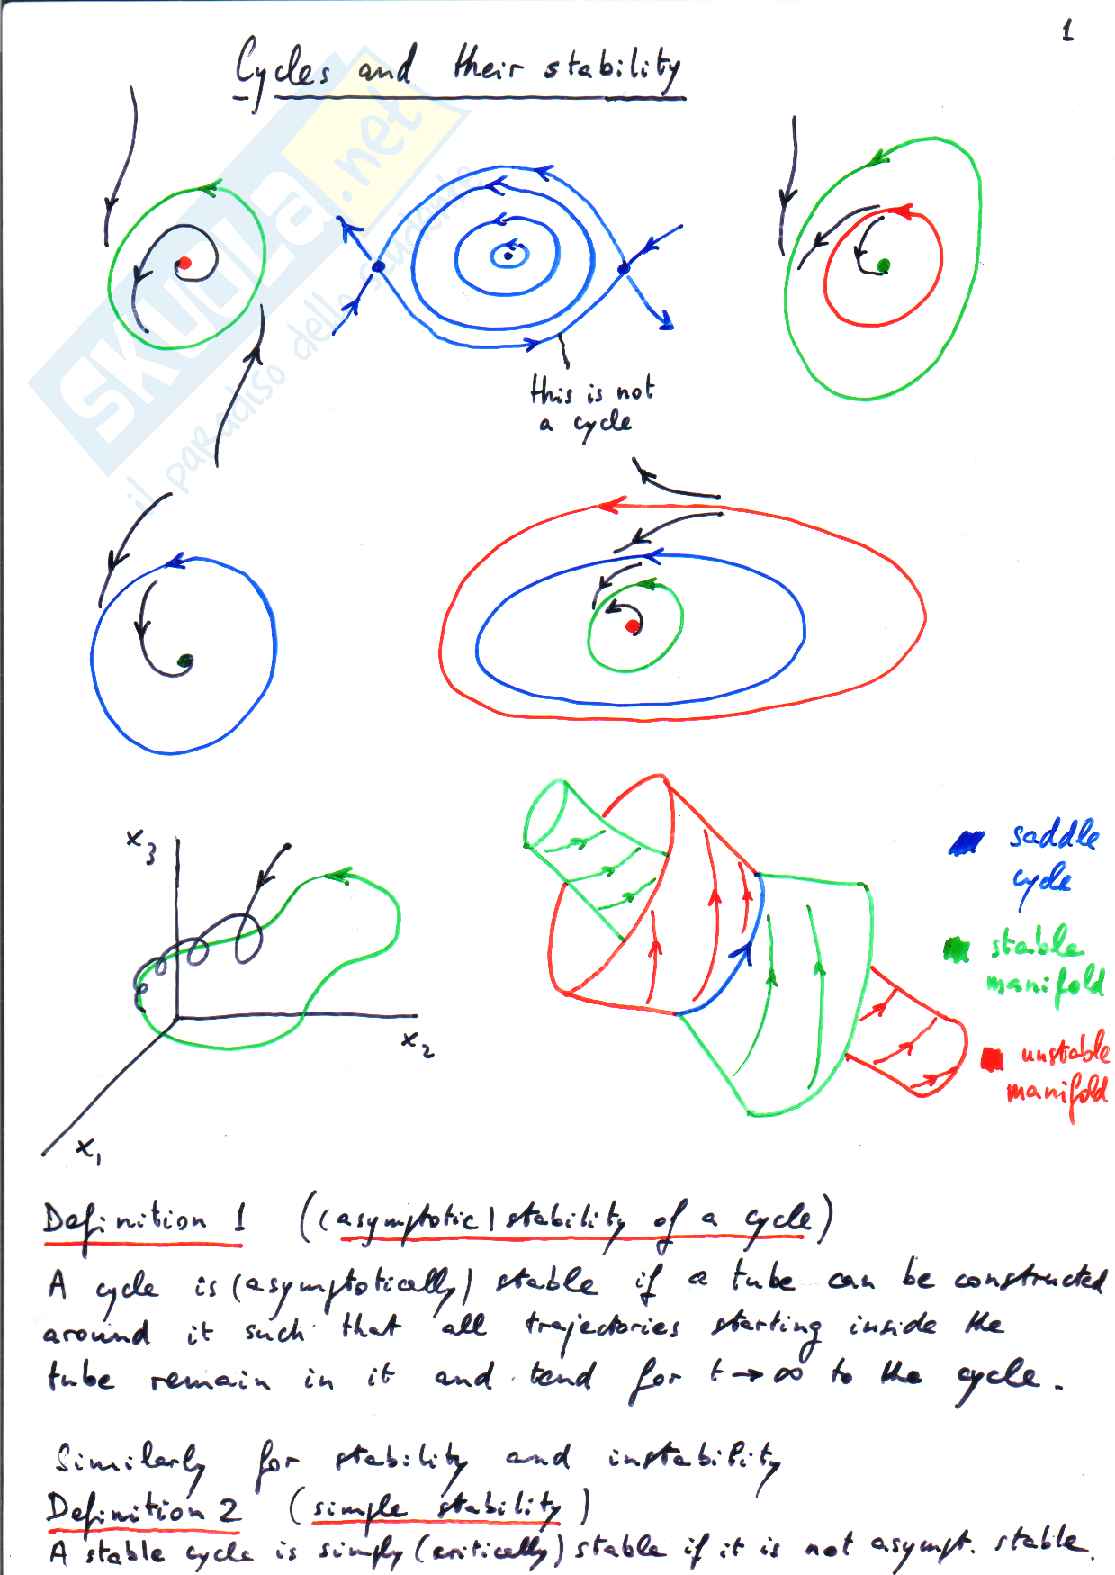 1
Cycles and their stability
SKUOLA.net
il paradiso dello studente
this is not
a cycle
x3
x2
x1
saddle
cycle
stable
manifold
unstable
manifold
Definition 1 ((asymptotic) stability of a cycle)
A cycle is (asymptotically) stable if a tube can be constructed
around it such that all trajectories starting inside the
tube remain in it and tend for t → ∞ to the cycle.
Similarly for stability and instability
Definition 2 (simple stability)
A stable cycle is simply (critically) stable if it is not asympt. stable.